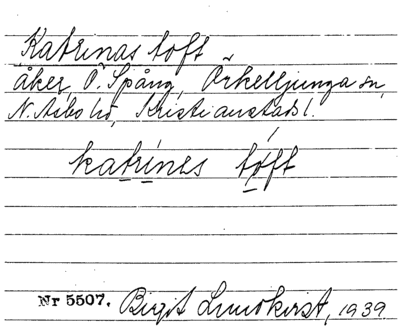 Katrinas toft
åker, Ö. Spång, Örkelljunga sn,
N. Åsbo hd, Kristianstads l.
katrines toft
Nr 5507. Birgit Lundkvist, 1939